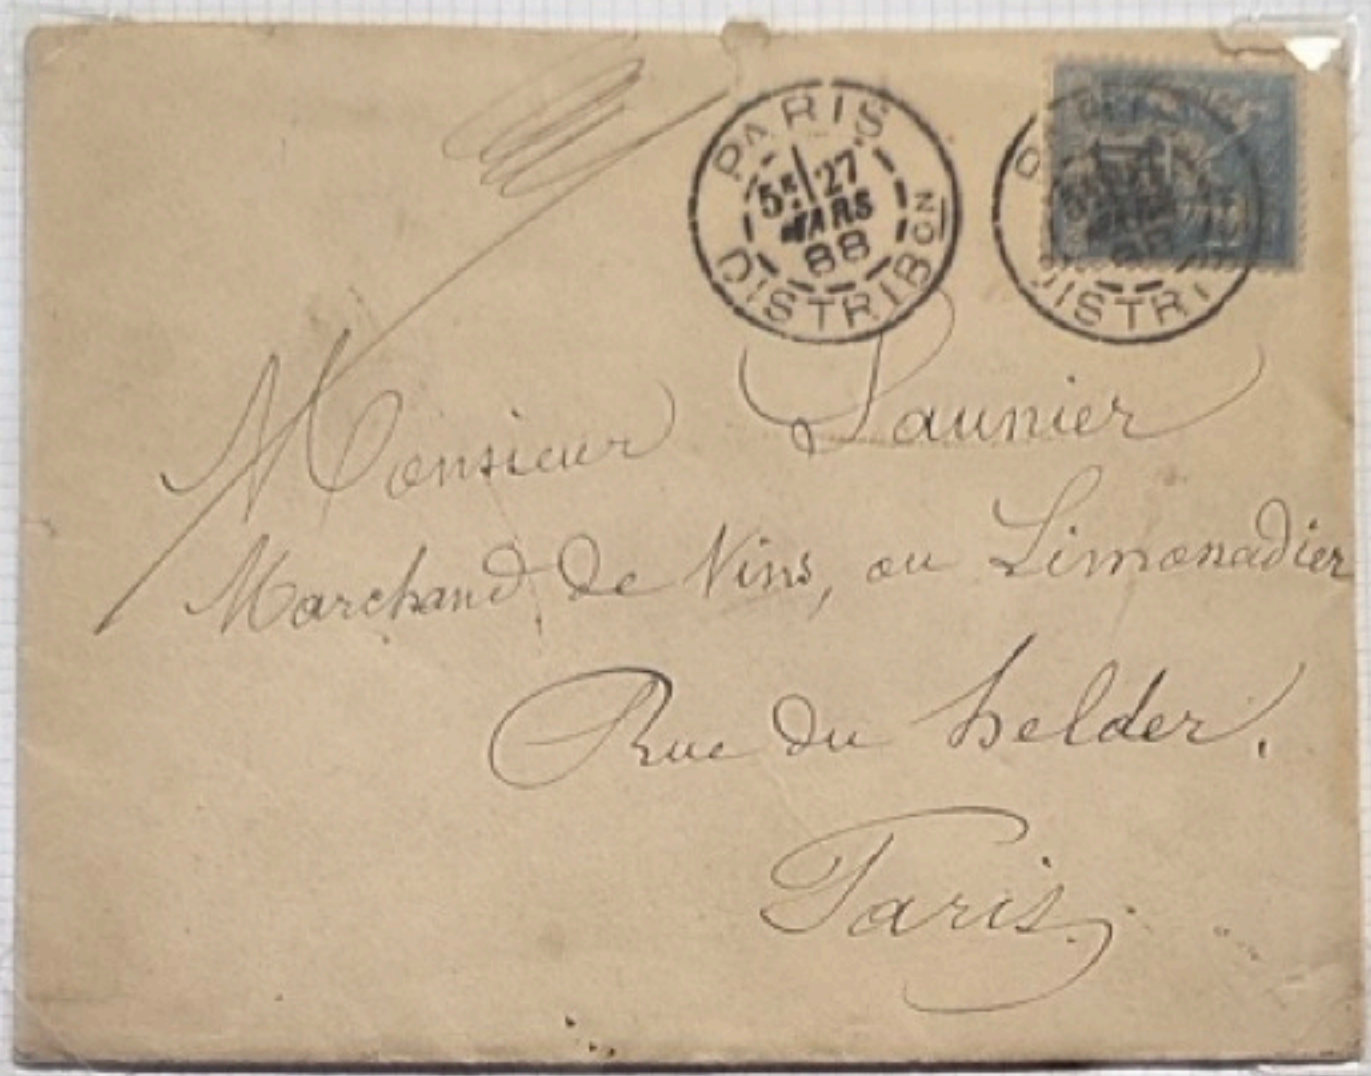 PARIS
5E 27
MARS
88
DISTRIBON
DISTRI
Monsieur Launier
Marchand de Vins, ou Limonadier
Rue du helder.
Paris.